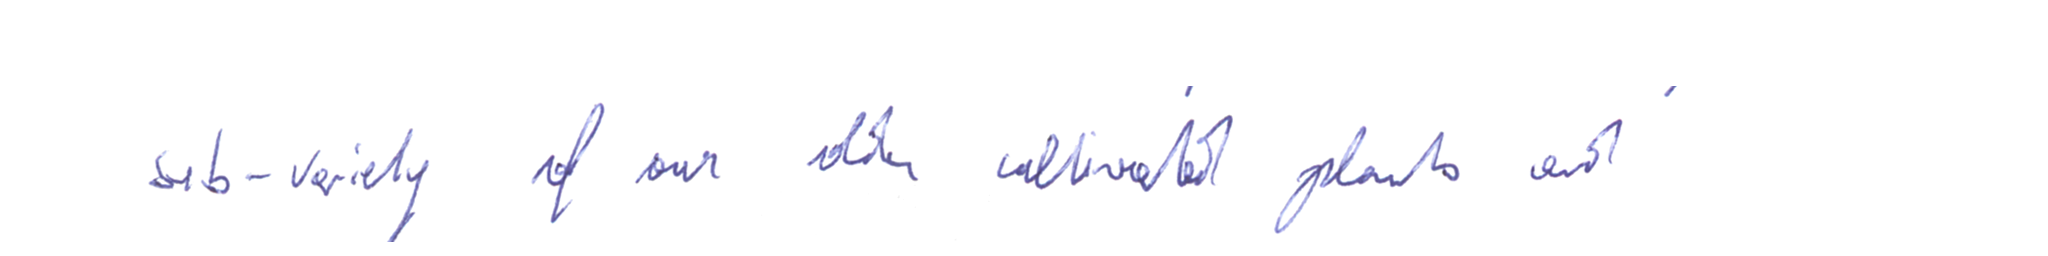 sub-variety of our older cultivated plants and